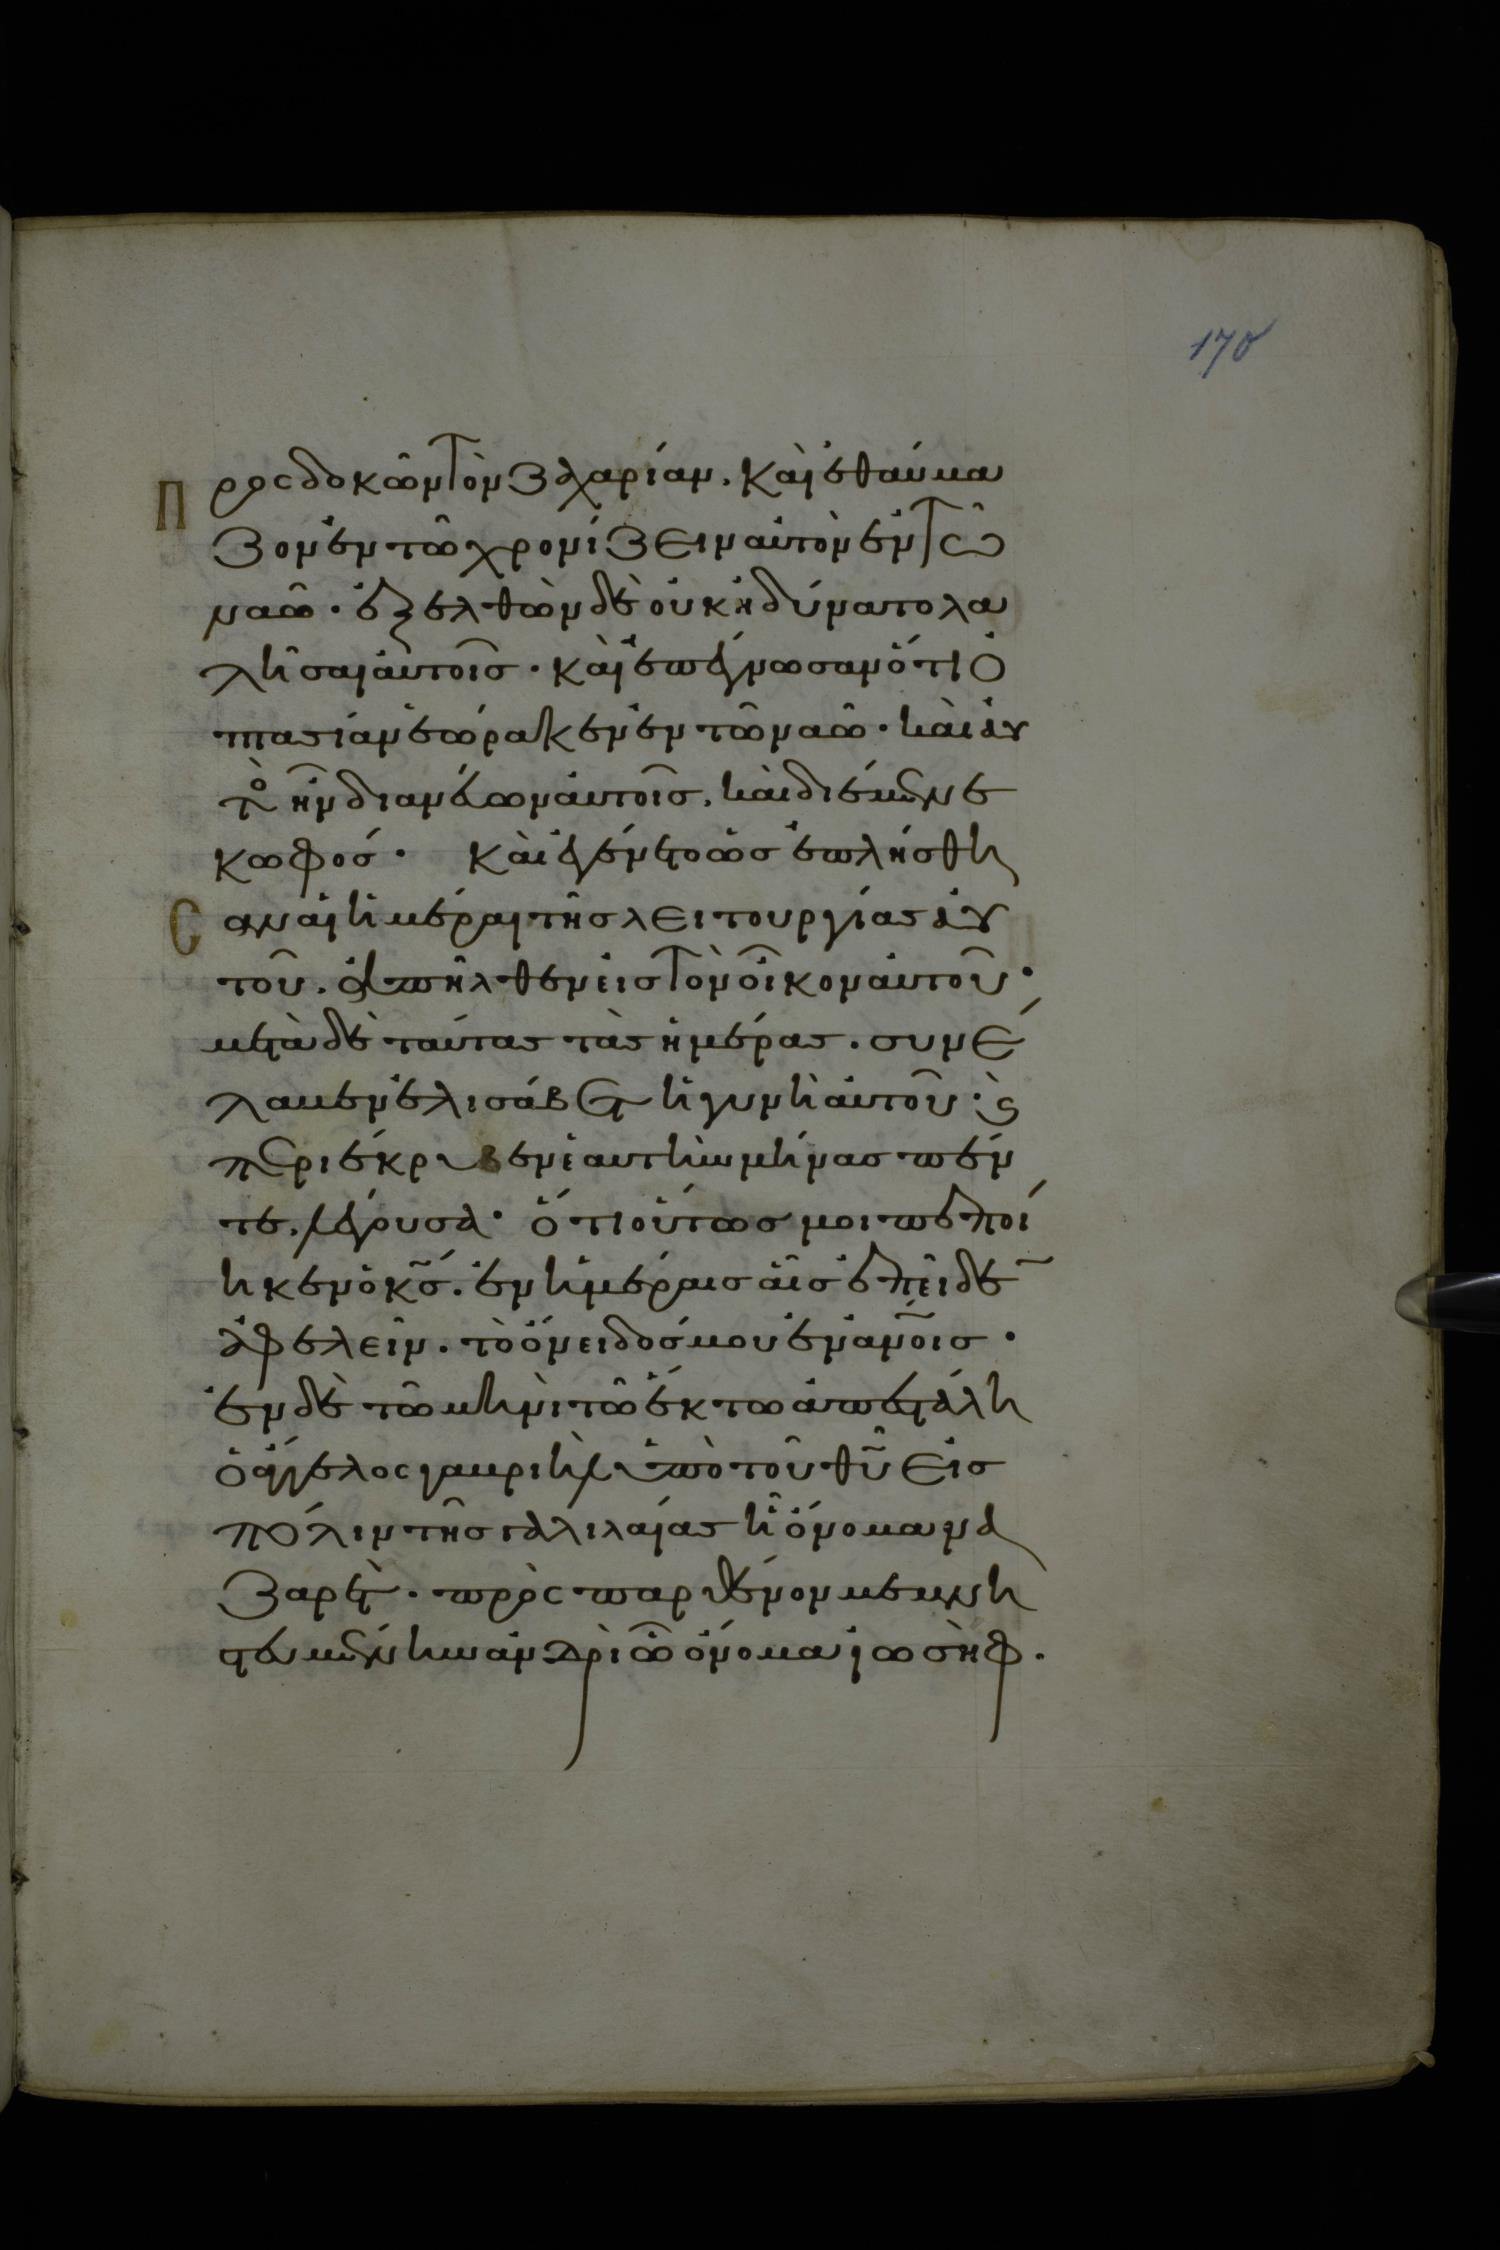 170
Προςδοκῶν τὸν ζαχαρίαν. καὶ ἐθαύμα
ζον ἐν τῶ χρονίζειν αὐτὸν ἐν τῶ
ναῶ. ἐξελθὼν δὲ οὐκ ἠδύνατο λα
λῆσαι αὐτοῖς. καὶ ἐπέγνωσαν ὅτι ὀ
πτασίαν ἑώρακεν ἐν τῶ ναῶ. καὶ αὐ
τὸ ἦν διανεύων αὐτοῖς. καὶ διέμενε
κωφός. καὶ ἐγένετο ὡς ἐπλήσθη
Cαν αἱ ἡμέραι τῆς λειτουργίας αὐ
τοῦ. ἀπῆλθεν εἰς τὸν οἶκον αὐτοῦ.
μετὰ δὲ ταύτας τὰς ἡμέρας. συνέ
λαβεν ἐλισάβετ ἡ γυνὴ αὐτοῦ. ϗ
περιέκρυβεν ἑαυτὴν μῆνας πέν
τε. λέγουσα. ὅτι οὕτως μοι πεποί
ηκεν ὁ κ̅ς̅. ἐν ἡμέραις αἷς ἐπεῖδεν
ἀφελεῖν. τὸ ὄνειδός μου ἐν ἀνοις.
ἐν δὲ τῶ μηνὶ τῶ ἕκτω ἀπεστάλη
ὁ ἄγγελος γαβριὴλ ὑπὸ τοῦ θ̅υ̅ εἰς
πόλιν τῆς γαλιλαίας ἧ ὄνομα να
ζαρέτ. πρὸς παρθένον μεμνη
στευμένην ἀνδρὶ ὧ ὄνομα ἰωσὴφ.